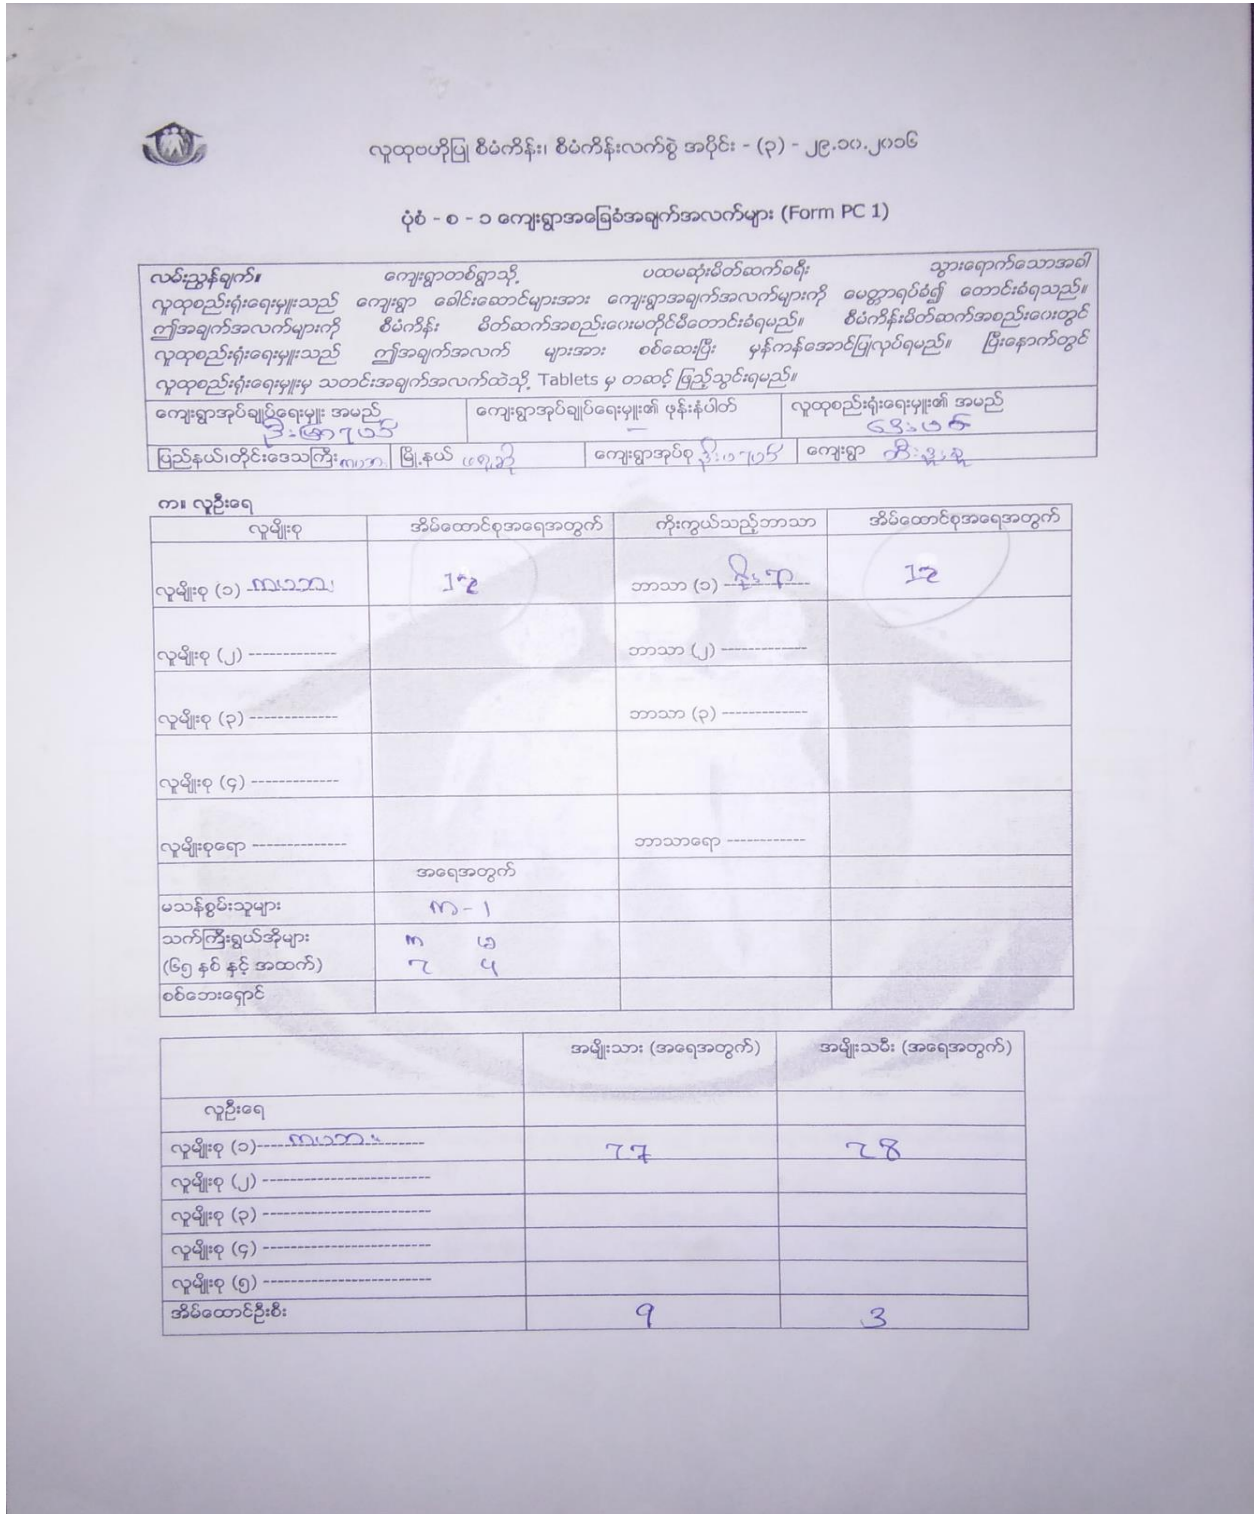 လူထုဗဟိုပြု စီမံကိန်း၊ စီမံကိန်းလက်စွဲ အပိုင်း - (၃) - ၂၉.၁၀.၂၀၁၆
ပုံစံ - စ - ၁ ကျေးရွာအခြေခံအချက်အလက်များ (Form PC 1)
လမ်းညွှန်ချက်။ ကျေးရွာတစ်ရွာသို့ ပထမဆုံးမိတ်ဆက်ခရီး သွားရောက်သောအခါ
လူထုစည်းရုံးရေးမှူးသည် ကျေးရွာ ခေါင်းဆောင်များအား ကျေးရွာအချက်အလက်များကို မေတ္တာရပ်ခံ၍ တောင်းခံရသည်။
ဤအချက်အလက်များကို စီမံကိန်း မိတ်ဆက်အစည်းဝေးမတိုင်မီတောင်းခံရမည်။ စီမံကိန်းမိတ်ဆက်အစည်းဝေးတွင်
လူထုစည်းရုံးရေးမှူးသည် ဤအချက်အလက် များအား စစ်ဆေးပြီး မှန်ကန်အောင်ပြုလုပ်ရမည်။ ပြီးနောက်တွင်
လူထုစည်းရုံးရေးမှူးမှ သတင်းအချက်အလက်ထဲသို့ Tablets မှ တဆင့် ဖြည့်သွင်းရမည်။
ကျေးရွာအုပ်ချုပ်ရေးမှူး အမည် ကျေးရွာအုပ်ချုပ်ရေးမှူး၏ ဖုန်းနံပါတ် လူထုစည်းရုံးရေးမှူး၏ အမည်
–
ပြည်နယ်၊တိုင်းဒေသကြီး ကယား မြို့နယ် ဖရူဆို ကျေးရွာအုပ်စု ကျေးရွာ
က။ လူဦးရေ
လူမျိုးစု အိမ်ထောင်စုအရေအတွက် ကိုးကွယ်သည့်ဘာသာ အိမ်ထောင်စုအရေအတွက်
လူမျိုးစု (၁) ကယား 12 ဘာသာ (၁) 12
လူမျိုးစု (၂) ------------- ဘာသာ (၂) -------------
လူမျိုးစု (၃) ------------- ဘာသာ (၃) -------------
လူမျိုးစု (၄) -------------
လူမျိုးစုရော -------------- ဘာသာရော ------------
အရေအတွက်
မသန်စွမ်းသူများ က-1
သက်ကြီးရွယ်အိုများ က မ
(၆၅ နှစ် နှင့် အထက်) 2 4
စစ်ဘေးရှောင်
အမျိုးသား (အရေအတွက်) အမျိုးသမီး (အရေအတွက်)
လူဦးရေ
လူမျိုးစု (၁)-----ကယား------- 27 28
လူမျိုးစု (၂) --------------------------
လူမျိုးစု (၃) --------------------------
လူမျိုးစု (၄) --------------------------
လူမျိုးစု (၅) --------------------------
အိမ်ထောင်ဦးစီး 9 3